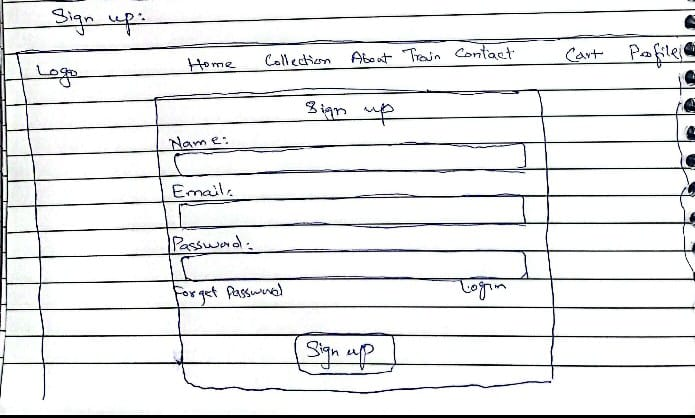 Sign up:
Logo Home Collection About Train Contact Cart Profile
Sign up
Name:
Email:
Password:
Forget Password Login
Sign up